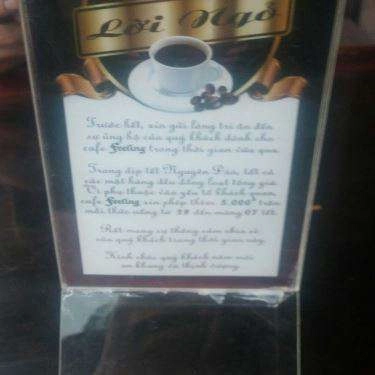 Lời Ngỏ
Trước hết, xin gửi lòng tri ân đến
sự ủng hộ của quý khách dành cho
cafe Feeling trong thời gian vừa qua.
Trong dịp tết Nguyên Đán, tất cả
các mặt hàng đều đồng loạt tăng giá.
Vì phụ thuộc vào yếu tố khách quan,
cafe Feeling xin phép thêm 5.000đ trên
mỗi thức uống từ 28 đến mùng 07 tết.
Rất mong sự thông cảm chia sẻ
của quý khách trong thời gian này.
Kính chúc quý khách năm mới
an khang và thịnh vượng.